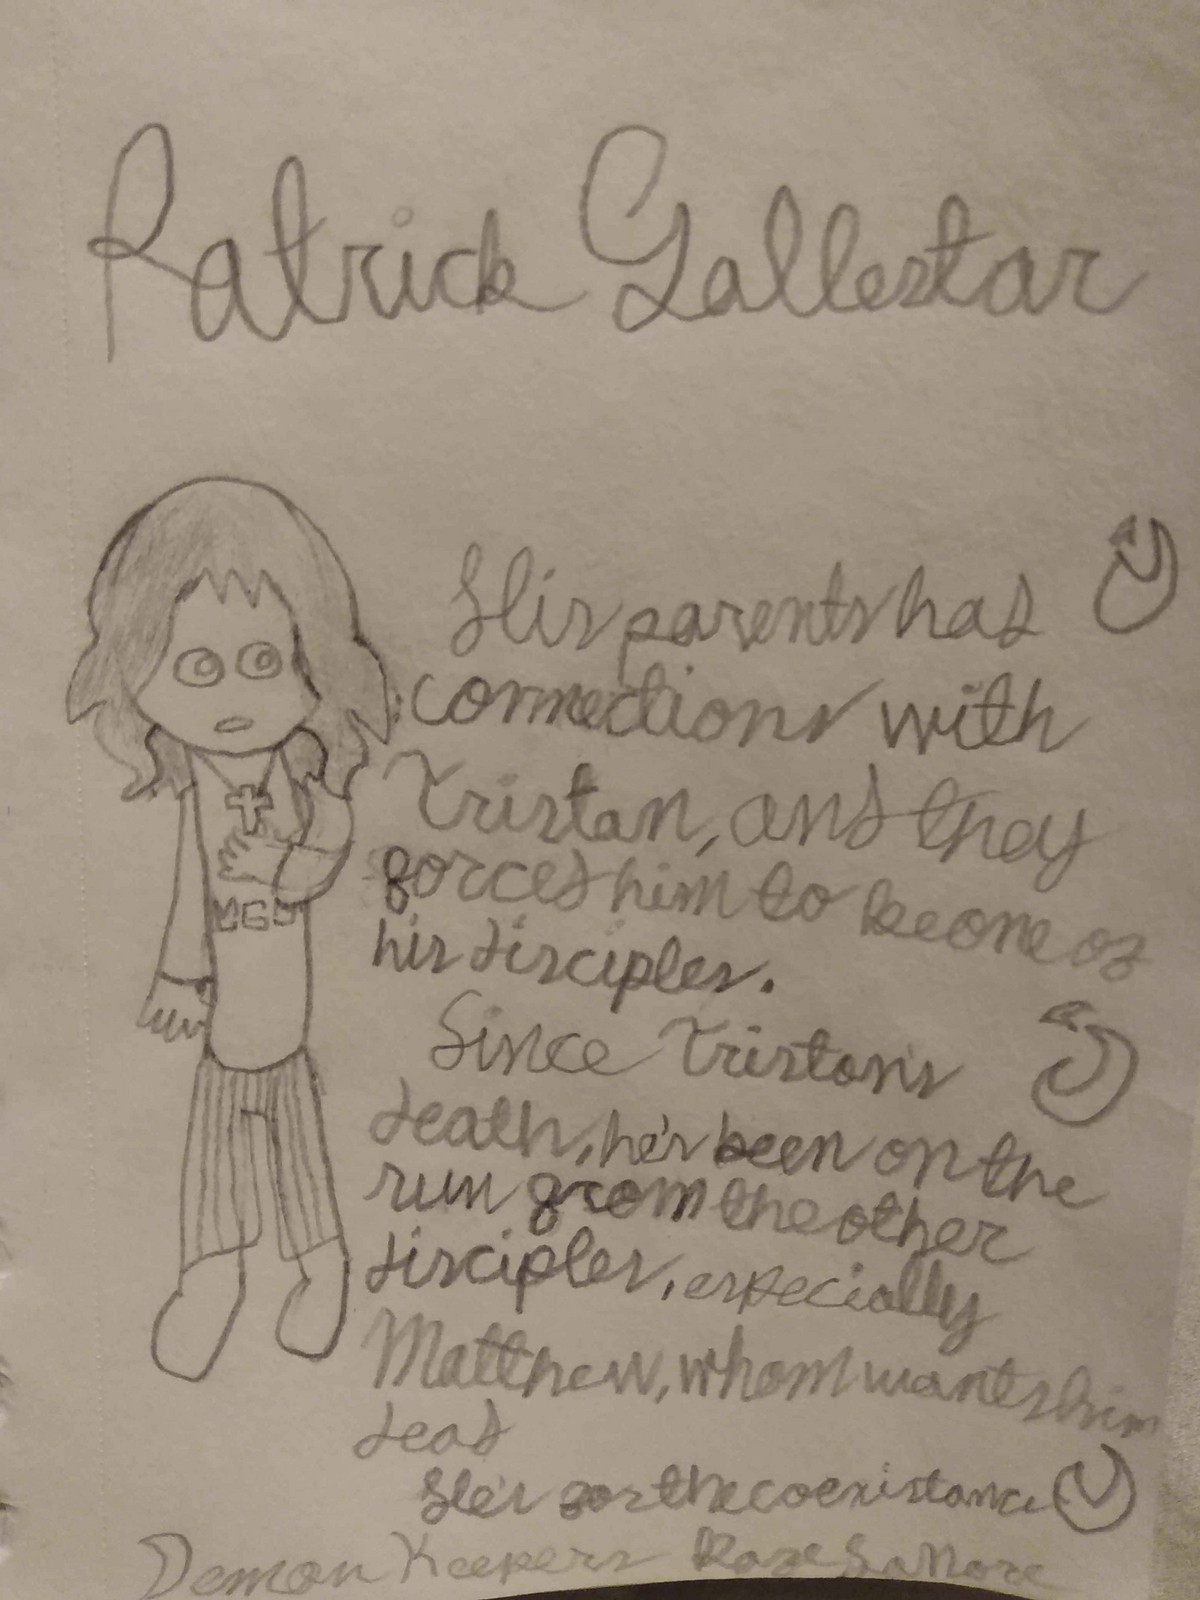 Patrick Gallestar
His parents has
connections with
Tristan, and they
forced him to be one of
his disciples.
MGD
Since Tristan's
death, he's been on the
run from the other
disciples, especially
Matthew, whom wants him
dead
He's for the coexistance
Demon Keepers Rose